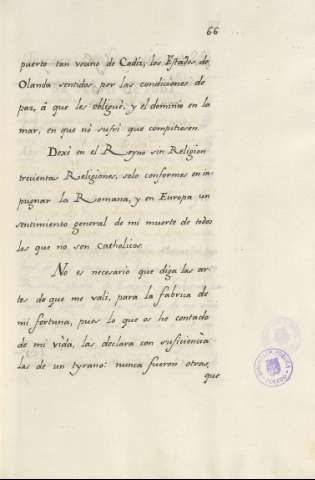 66
puerto tan vecino de Cadiz; los Estados de
Olanda sentidos por las condiciones de
paz, á que les obliguè, y el dominio en la
mar, en que nò sufri que compitiesen.
Dexè en el Reyno sin Religion
trecientas Religiones, solo conformes en im
pugnar la Romana, y en Europa un
sentimiento general de mi muerte de todos
los que no son catholicos.
No es necesario que diga las ar
tes de que me valì, para la fabrica de
mi fortuna, pues lo que os he contado
de mi vida, las declara con suficiencia
las de un tyrano: nunca fueron otras,
que